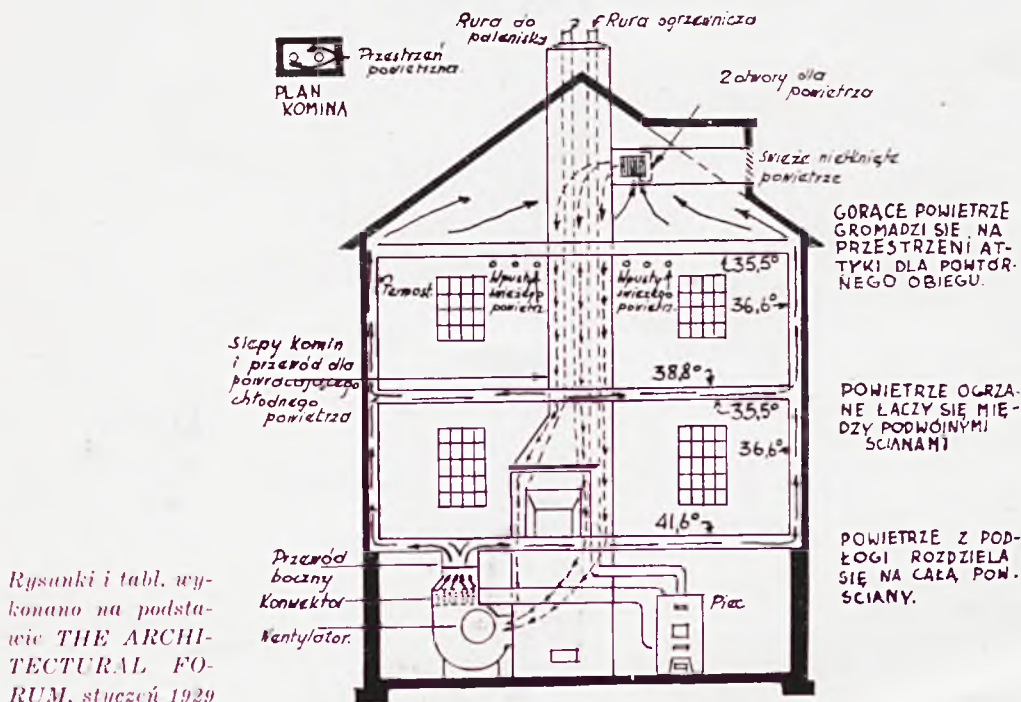 Rura do
paleniska
Rura ogrzewnicza
Przestrzeń
powietrzna.
PLAN
KOMINA
2 otwory dla
powietrza
Swieże nietknięte
powietrze
GORĄCE POWIETRZE
GROMADZI SIĘ NA
PRZESTRZENI AT-
TYKI DLA POWTÓR-
NEGO OBIEGU.
35,5°
Termost.
Wpusty
świeżego
powietrz.
Wpusty
świeżego
powietrz.
36,6°
Slepy komin
i przewód dla
powracającego
chłodnego
powietrza
38,8°
35,5°
POWIETRZE OGRZA-
NE ŁĄCZY SIĘ MIĘ-
DZY PODWÓJNYMI
ŚCIANAMI
36,6°
41,6°
Przewód
boczny
Konwektor
Wentylator.
Piec
POWIETRZE Z POD-
ŁOGI ROZDZIELA
SIĘ NA CAŁĄ POW.
ŚCIANY.
Rysunki i tabl. wy-
konano na podsta-
wie THE ARCHI-
TECTURAL FO-
RUM, styczeń 1929